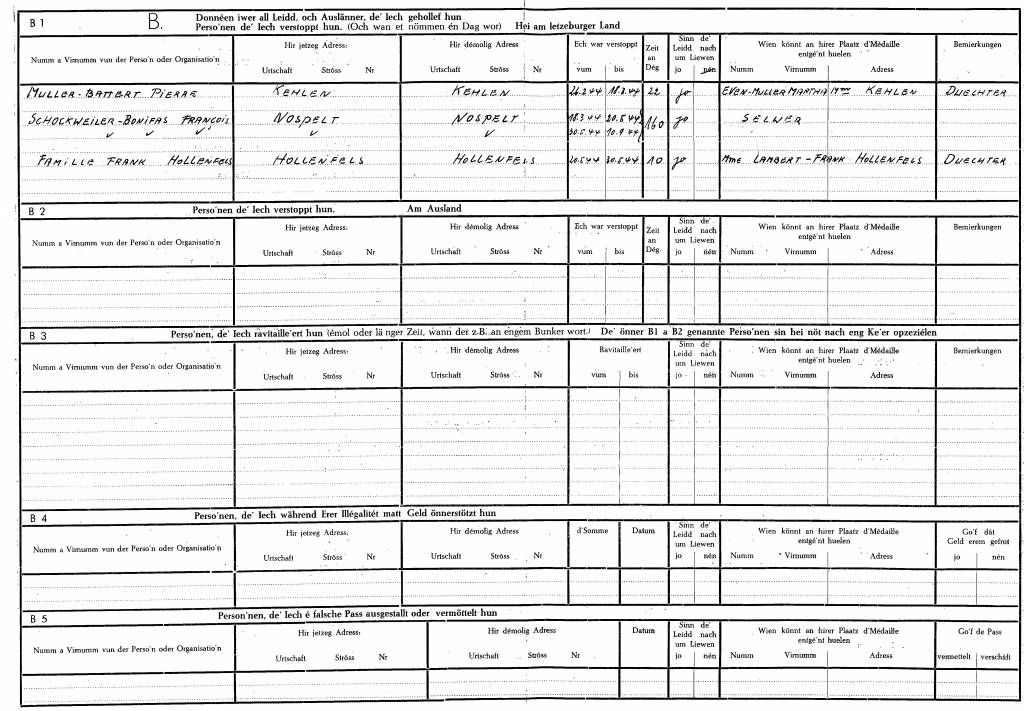 B 1 B. Donnéen iwer all Leidd, och Auslänner, de' Iech gehollef hun
Perso'nen de' Iech verstoppt hun. (Och wan et nömmen én Dag wor) Hei am letzeburger Land
Numm a Virnumm vun der Perso'n oder Organisatio'n
Hir jetzeg Adress:
Urtschaft Ströss Nr
Hir démolig Adress
Urtschaft Ströss Nr
Ech war verstoppt
vum bis
Zeit an Dég
Sinn de' Leidd nach um Liewen
jo nén
Wien könnt an hirer Plaatz d'Médaille entgé'nt huelen
Numm Virnumm Adress
Bemierkungen
MULLER-BATTERT PIERRE KEHLEN KEHLEN 26.2.44 18.3.44 22 jo EVEN-MULLER MARTHA Mme KEHLEN DUECHTER
SCHOCKWEILER-BONIFAS FRANÇOIS NOSPELT NOSPELT 18.3.44 20.5.44 160 jo SELWER
30.5.44 10.9.44
FAMILLE FRANK HOLLENFELS HOLLENFELS HOLLENFELS 20.5.44 30.5.44 10 jo Mme LAMBERT-FRANK HOLLENFELS DUECHTER
B 2 Perso'nen de' Iech verstoppt hun. Am Ausland
Numm a Virnumm vun der Perso'n oder Organisatio'n
Hir jetzeg Adress:
Urtschaft Ströss Nr
Hir démolig Adress
Urtschaft Ströss Nr
Ech war verstoppt
vum bis
Zeit an Dég
Sinn de' Leidd nach um Liewen
jo nén
Wien könnt an hirer Plaatz d'Médaille entgé'nt huelen
Numm Virnumm Adress
B 3 Perso'nen, de' Iech ravitaille'ert hun (émol oder länger Zeit, wann der z.B. an engem Bunker wort.) De' önner B1 a B2 genannte Perso'nen sin hei nöt nach eng Ke'er opzeziélen
Numm a Virnumm vun der Perso'n oder Organisatio'n
Hir jetzeg Adress:
Urtschaft Ströss Nr
Hir démolig Adress
Urtschaft Ströss Nr
Ravitaille'ert
vum bis
Sinn de' Leidd nach um Liewen
jo nén
Wien könnt an hirer Plaatz d'Médaille entgé'nt huelen
Numm Virnumm Adress
Bemierkungen
B 4 Perso'nen, de' Iech während Erer Illégalitét matt Geld önnerstötzt hun
Numm a Virnumm vun der Perso'n oder Organisatio'n
Hir jetzeg Adress:
Urtschaft Ströss Nr
Hir démolig Adress
Urtschaft Ströss Nr
d'Somme
Datum
Sinn de' Leidd nach um Liewen
jo nén
Wien könnt an hirer Plaatz d'Médaille entgé'nt huelen
Numm Virnumm Adress
Go'f dât Geld erem gefrot
jo nén
B 5 Person'nen, de' Iech é falsche Pass ausgestallt oder vermöttelt hun
Numm a Virnumm vun der Perso'n oder Organisatio'n
Hir jetzeg Adress:
Urtschaft Ströss Nr
Hir démolig Adress
Urtschaft Ströss Nr
Datum
Sinn de' Leidd nach um Liewen
jo nén
Wien könnt an hirer Plaatz d'Médaille entgé'nt huelen
Numm Virnumm Adress
Go'f de Pass
vermettelt verschäft